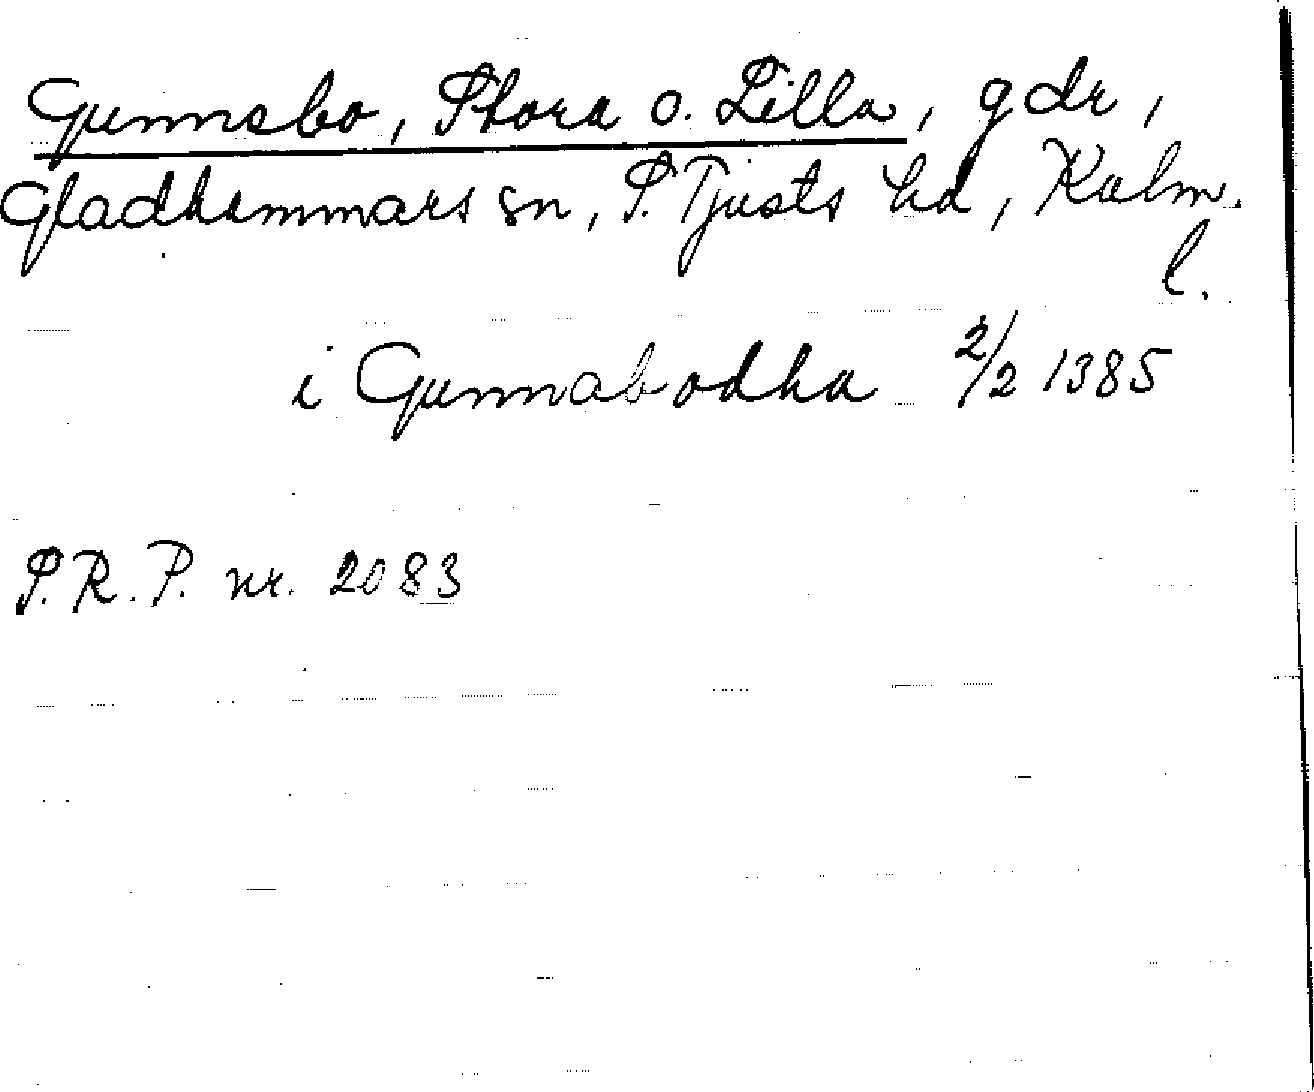 Gunnsbo, Stora o. Lilla, gdr,
Gladhammars sn, S. Tjusts hd, Kalm.
l.
i Gunnabodha 2/2 1385
S.R.P. nr. 2083